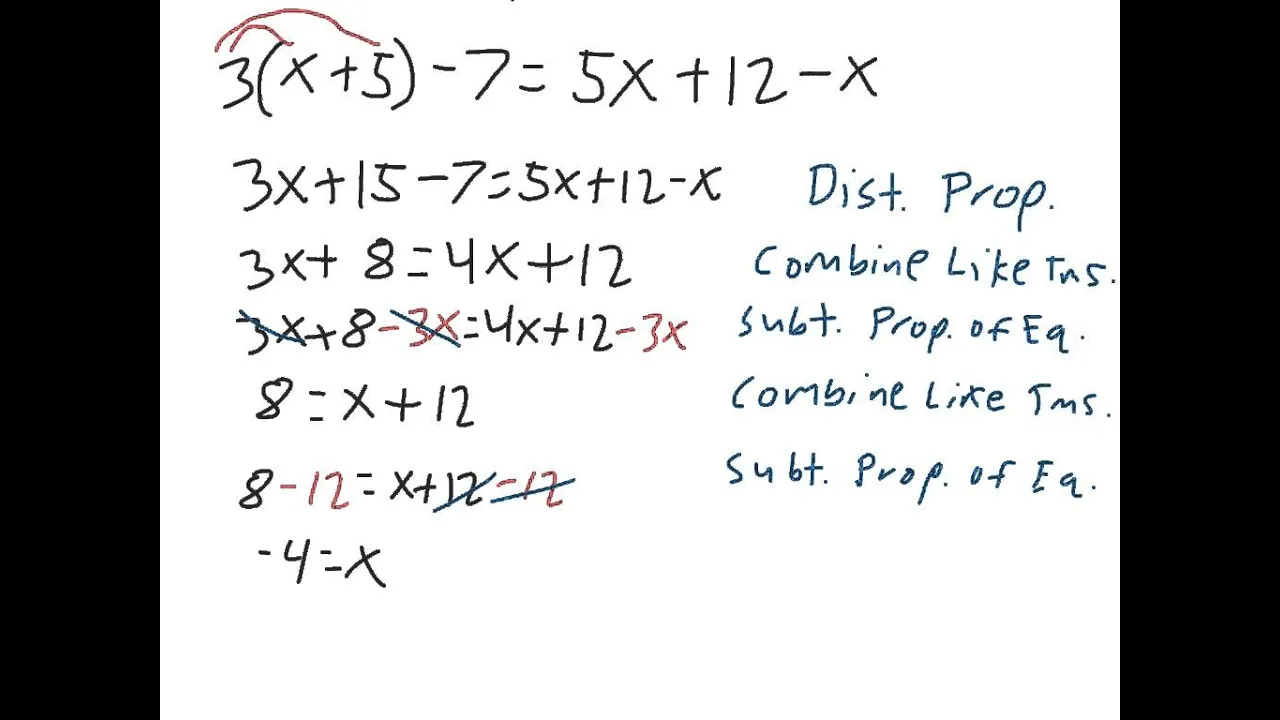 3(x+5)-7=5x+12-x
3x+15-7=5x+12-x Dist. Prop.
3x+8=4x+12 Combine Like Tms.
3x+8-3x=4x+12-3x Subt. Prop. of Eq.
8=x+12 Combine Like Tms.
8-12=x+12-12 Subt. Prop. of Eq.
-4=x